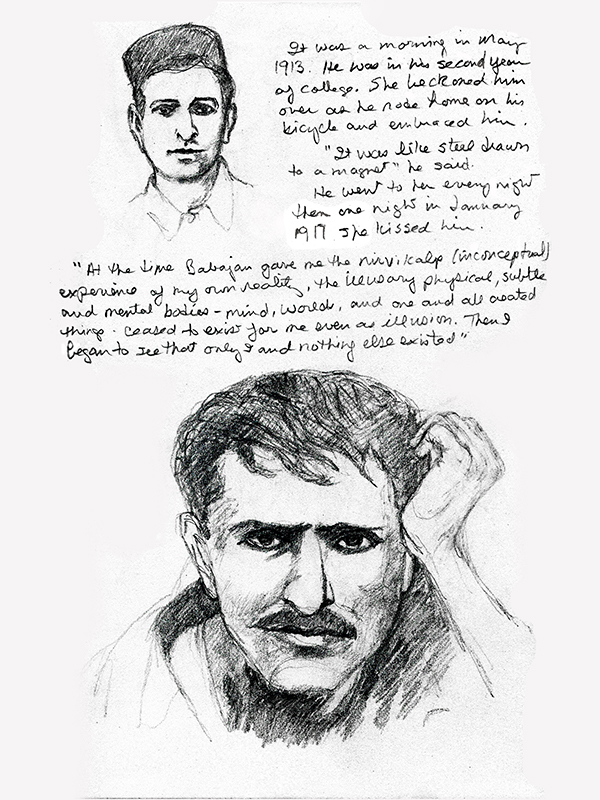 It was a morning in May
1913. He was in his second year
of college. She beckoned him
over as he rode home on his
bicycle and embraced him.
"It was like steel drawn
to a magnet" he said.
He went to her every night
then one night in January
1917 she kissed him.
"At the time Babajan gave me the nirvikalp (inconceptual)
experience of my own reality, the illusary physical, subtle
and mental bodies - mind, worlds, and one and all created
things - ceased to exist for me even as illusion. Then I
began to see that only I and nothing else existed"